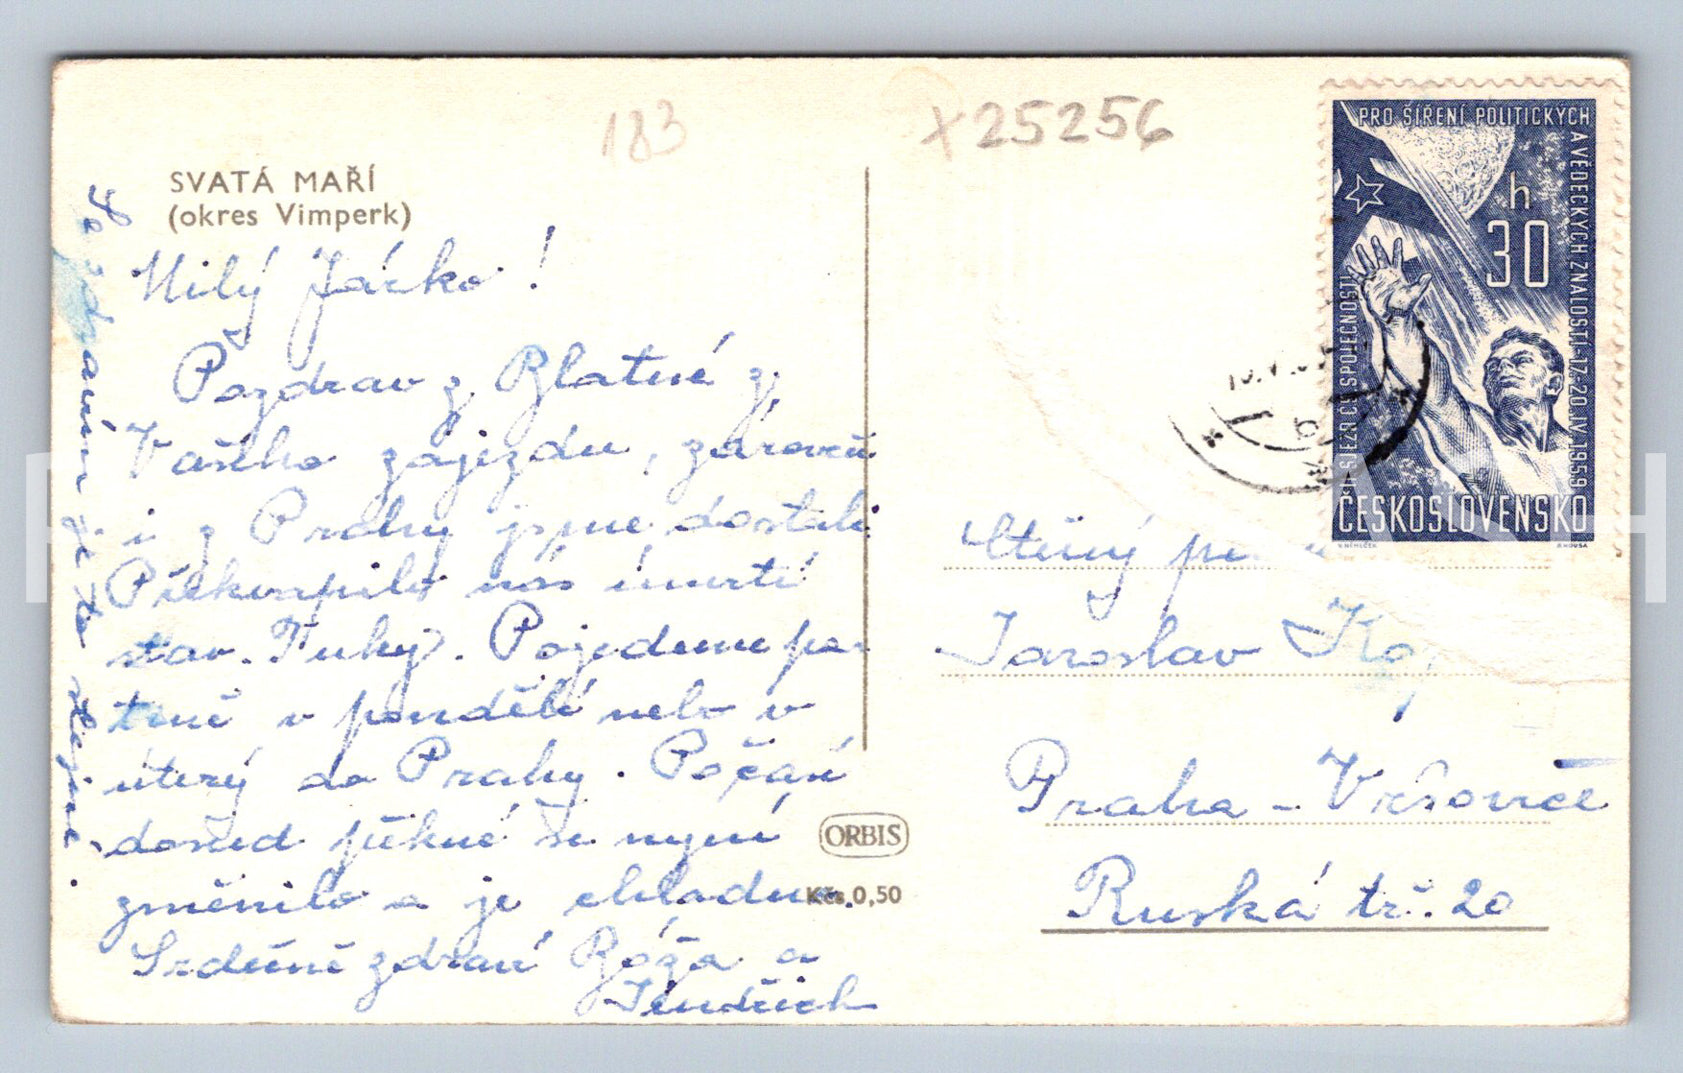 183
x25256
SVATÁ MAŘÍ
(okres Vimperk)
Milý Járko!
Pozdrav z Blatné z
Vašeho zájezdu, zároveň
i z Prahy jsme dostali.
Překvapilo nás úmrtí
stav. Tuhý. Pojedeme pa-
trně v pondělí nebo v
úterý do Prahy. Počasí
dosud pěkné se nyní
změnilo a je chladno.
Srdečně zdraví Róža a
Jindřich
je to
ORBIS
Kčs 0,50
PRO ŠÍŘENÍ POLITICKÝCH
A VĚDECKÝCH ZNALOSTÍ-17.-20.IV.1959
SJEZD ČS SPOLEČNOSTI
h
30
ČESKOSLOVENSKO
V. NĚMEČEK
Ctěný
Jaroslav
Praha - Vršovice
Ruská tř. 20